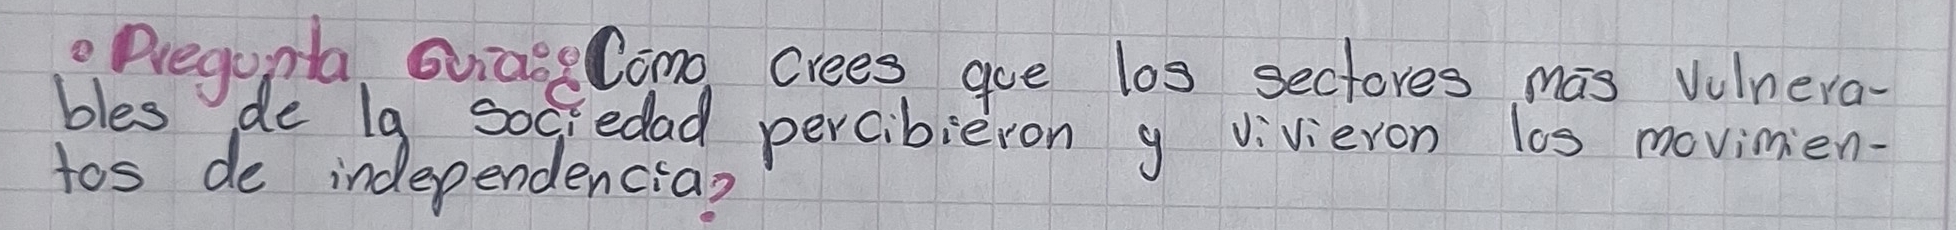 • Pregunta Guía: ¿Cómo crees que los sectores más vulnera-
bles de la sociedad percibieron y vivieron los movimien-
tos de independencia?